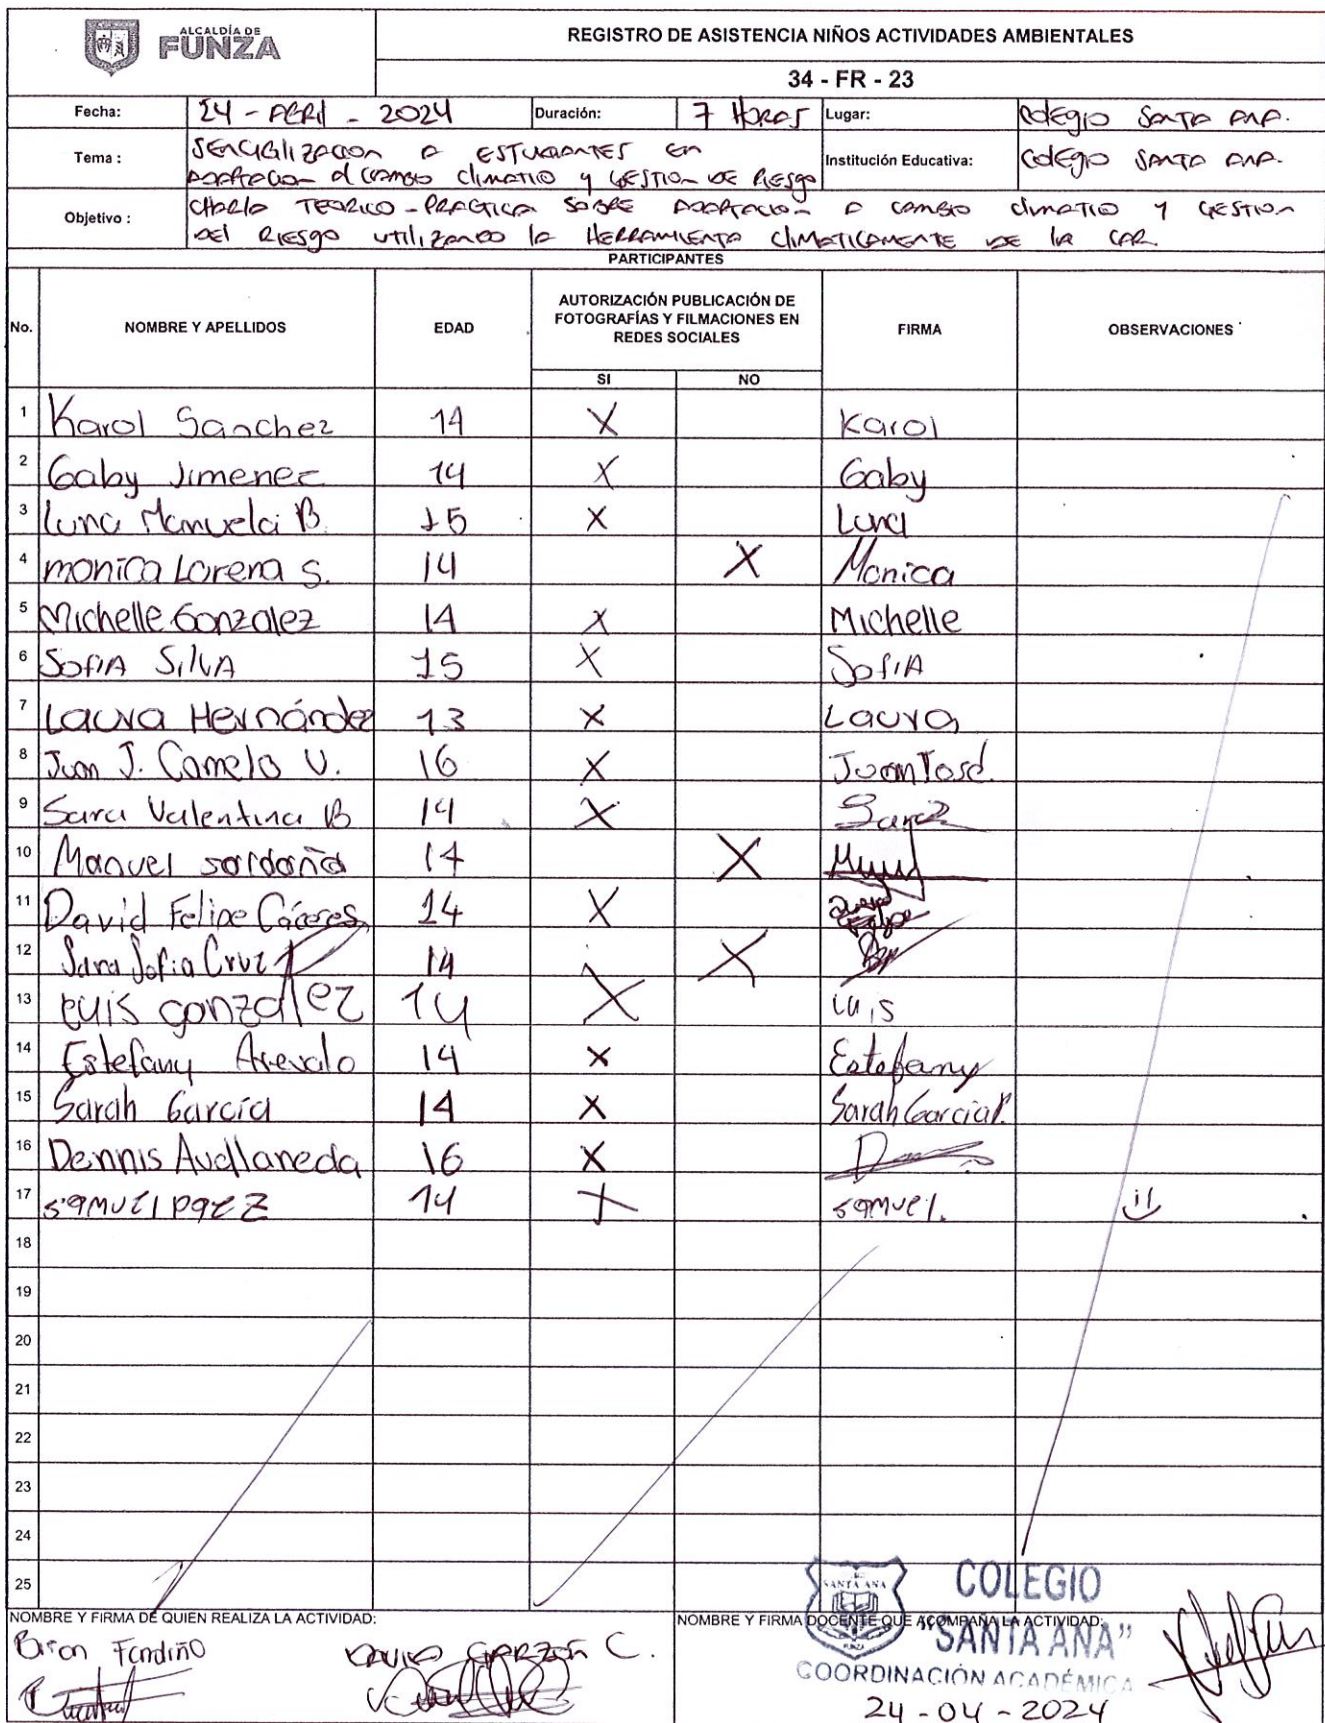 ALCALDÍA DE
FUNZA
REGISTRO DE ASISTENCIA NIÑOS ACTIVIDADES AMBIENTALES
34 - FR - 23
Fecha: 24 - ABRIL - 2024 Duración: 7 HORAS Lugar: Colegio SANTA ANA.
Tema : SENCIBILIZACION A ESTUDIANTES EN
ADAPTACION al CAMBIO climATICO y GESTION DE RIESGO Institución Educativa: Colegio SANTA ANA.
Objetivo : CHARLA TEORICO - PRACTICA SOBRE ADAPTACION A CAMBIO climATICO Y GESTION
DEL RIESGO UTILIZANDO la HERRAMIENTA CLIMATICAMENTE DE la CAR.
PARTICIPANTES
No. NOMBRE Y APELLIDOS EDAD AUTORIZACIÓN PUBLICACIÓN DE FOTOGRAFÍAS Y FILMACIONES EN REDES SOCIALES FIRMA OBSERVACIONES
SI NO
1 Karol Sanchez 14 X Karol
2 Gaby Jimenez 14 X Gaby
3 Luna Manuela B. 15 X Luna
4 monica Lorena S. 14 X Monica
5 Michelle Gonzalez 14 X Michelle
6 SofiA SilvA 15 X SofiA
7 Laura Hernández 13 X Laura
8 Juan J. Camelo V. 16 X Juan José.
9 Sara Valentina B 14 X Sara
10 Manuel saldaña 14 X
11 David Felipe Cáceres 14 X David Felipe
12 Sara Sofia Cruz 14 X
13 Luis gonzalez 14 X Luis
14 Estefany Arevalo 14 X Estefany
15 Sarah García 14 X Sarah García
16 Dennis Avellaneda 16 X
17 samuel paez 14 X samuel.
18
19
20
21
22
23
24
25
NOMBRE Y FIRMA DE QUIEN REALIZA LA ACTIVIDAD: NOMBRE Y FIRMA DOCENTE QUE ACOMPAÑA LA ACTIVIDAD:
Brian Fandiño DAVID GARZÓN C.
SANTA ANA
FUNZA
COLEGIO
"SANTA ANA"
COORDINACIÓN ACADÉMICA
24 - 04 - 2024